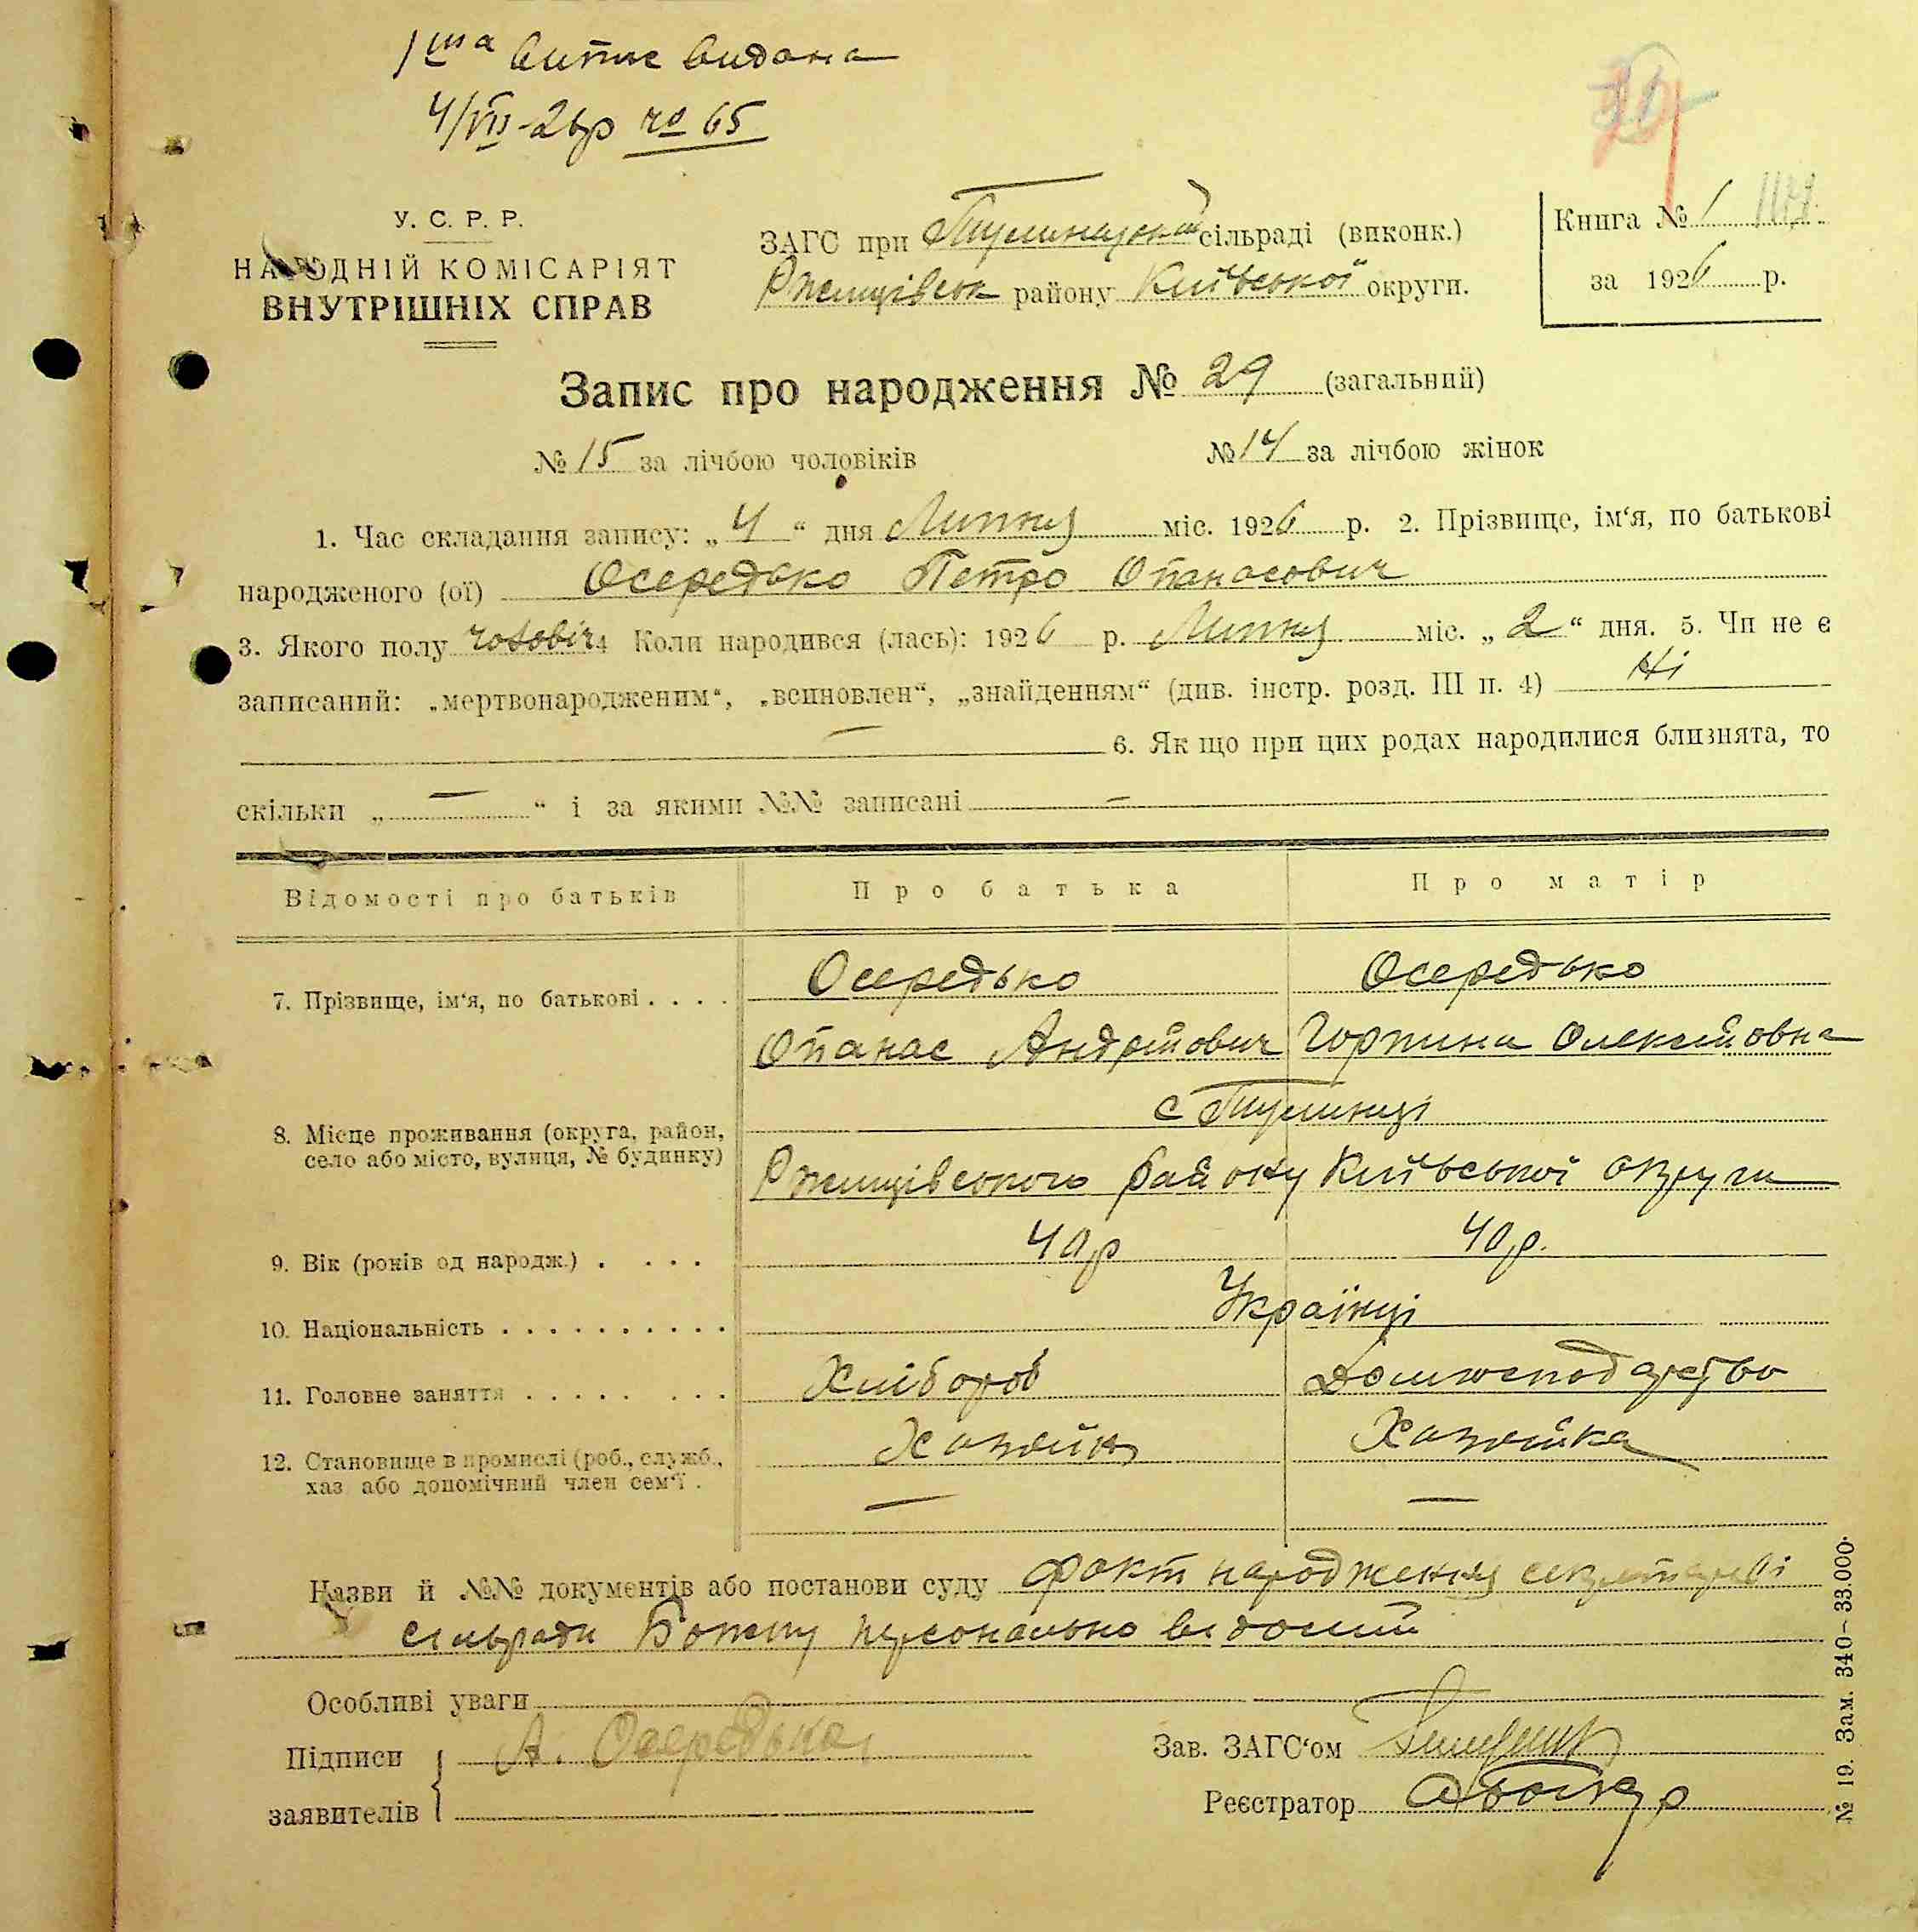 1ша випис видана
4/VII-26р № 65
У. С. Р. Р.
НАРОДНІЙ КОМІСАРІЯТ
ВНУТРІШНІХ СПРАВ
ЗАГС при Тулинецькій сільраді (виконк.)
Ржищівськ району Київської округи.
Книга № 1
за 1926 р.
Запис про народження № 29 (загальний)
№ 15 за лічбою чоловіків № 14 за лічбою жінок
1. Час складання запису: „ 4 “ дня Липня міс. 1926 р. 2. Прізвище, ім‘я, по батькові
народженого (ої) Осередько Петро Опанасович
3. Якого полу чоловіч 4 Коли народився (лась): 1926 р. Липня міс. „ 2 “ дня. 5. Чи не є
записаний: „мертвонародженим“, „всиновлен“, „знайденням“ (див. інстр. розд. III п. 4) Ні
— 6. Як що при цих родах народилися близнята, то
скільки „ — “ і за якими №№ записані —
Відомості про батьків Про батька Про матір
7. Прізвище, ім‘я, по батькові . . . . Осередько Осередько
Опанас Андрійович Горпина Олексійовна
8. Місце проживання (округа, район, с Тулинці
село або місто, вулиця, № будинку) Ржищівського району Київської округи
9. Вік (років од народж.) . . . . 40р 40р.
10. Національність . . . . . . . . . . Українці
11. Головне заняття . . . . . . . . Хлібороб Домгосподарство
12. Становище в промислі (роб., служб., Хазяїн Хазяйка
хаз або допомічний член сем‘ї . — —
Назви й №№ документів або постанови суду факт народження секретареві
сільради Божку персонально відомий
Особливі уваги
Підписи А. Осередько Зав. ЗАГС‘ом
заявителів Реєстратор
№ 19. Зам. 340–33.000.